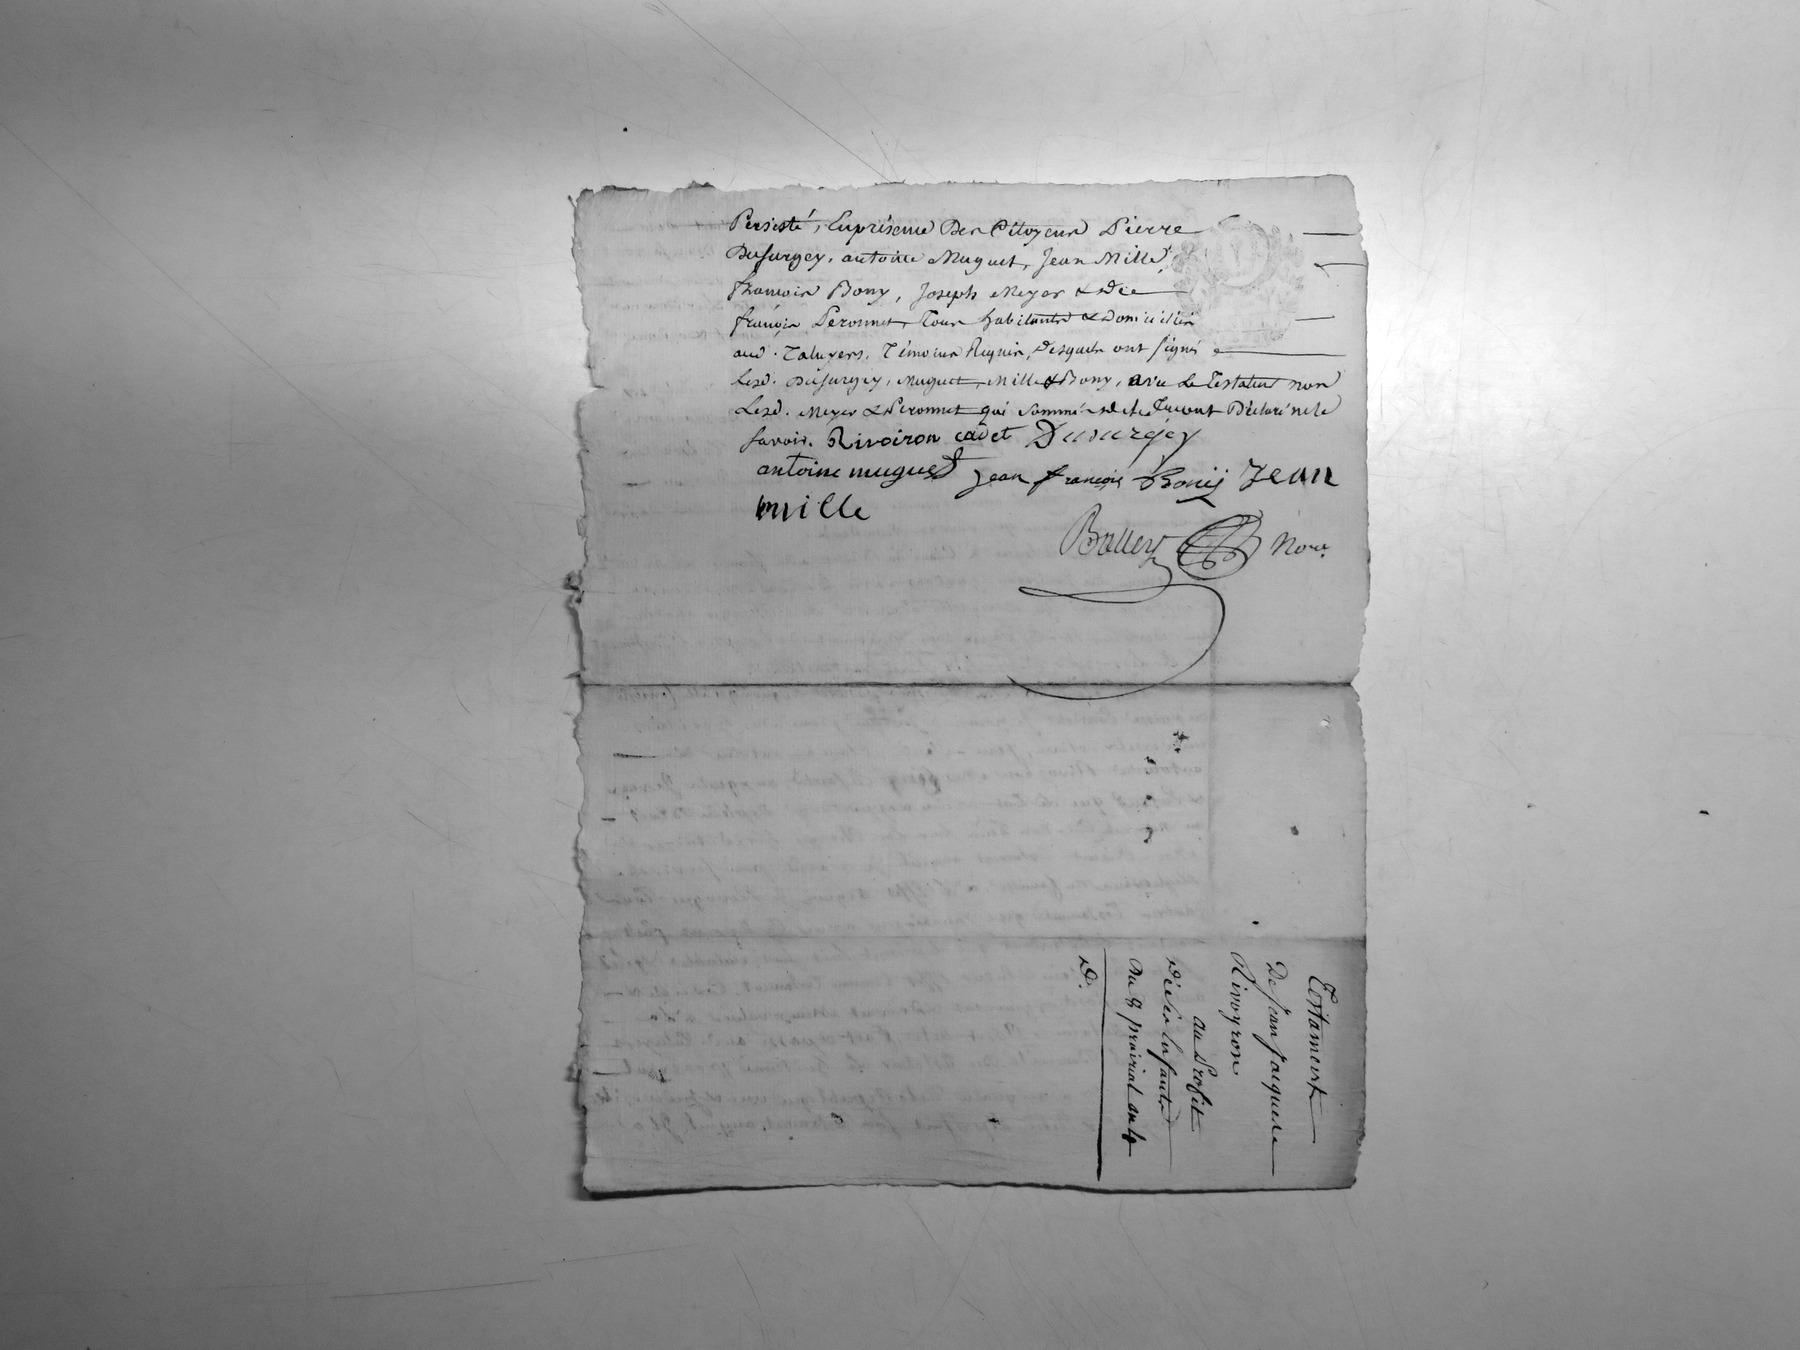 Persisté, En présence Des Citoyens Pierre
Dusurgey, antoine Muguet, Jean Mille,
françois Bony, Joseph Meyer & Die
françois Peronnet, Tous habitants & Domiciliés
aud. Taluyers, Témoins Requis, Desquels ont signé
Lesd. Dusurgey, Muguet, Mille & Bony, avec Le Testateur non
Lesd. Meyer & Peronnet qui sommés de le faire ont Déclaré ne le
savoir. Rivoiron cadet Dusurgey
antoine muguet Jean françois Bonÿ Jean
mille
Bolley Nore.
Testament
De Jean Jacques
Rivoyron
au Profit
De ses Enfants
Du 8 prairial an 4
D.